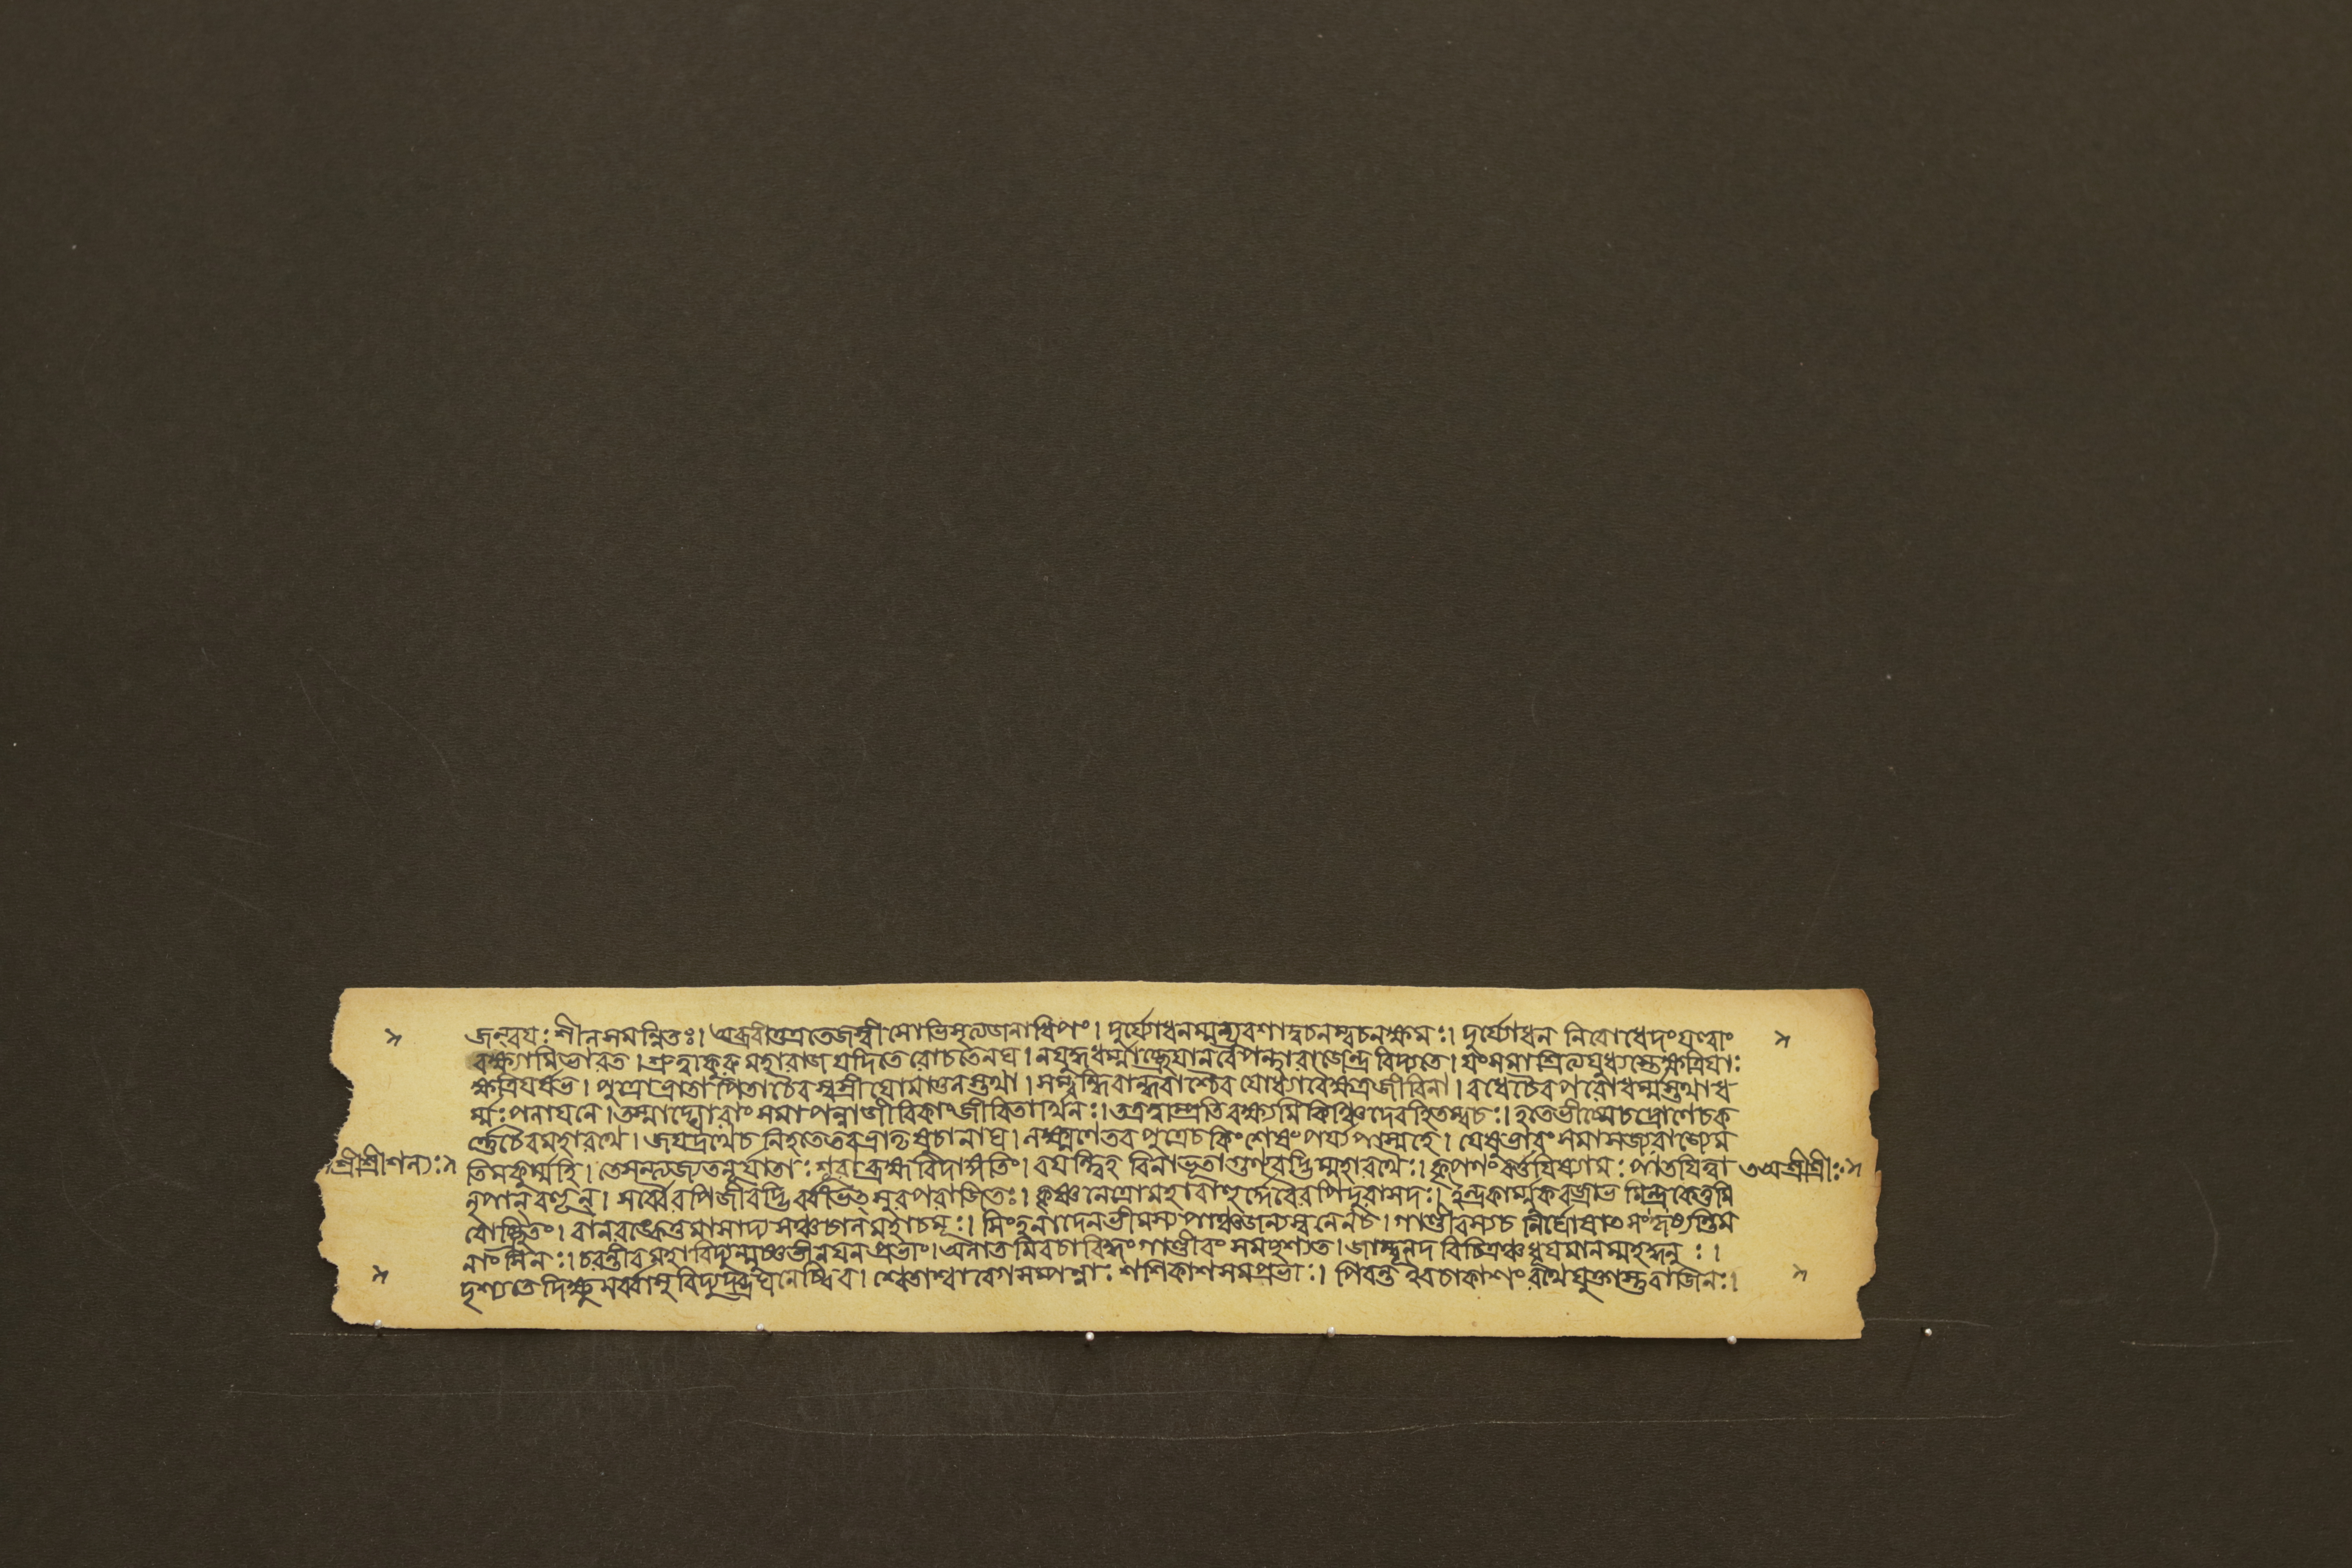 জন্বয়ঃ শীলসমন্বিতঃ। অব্রবীত্তত্রতেজস্বী সোভিসৃত্যজনাধিপং। দুর্য্যোধনম্মন্যুবশাদ্বচনম্বচনক্ষমঃ। দুর্য্যোধন নিবোধেদংযত্ত্বাং
বক্ষ্যামিভারত। শ্রুত্বাকুরু মহারাজ যদিতে রোচতেনঘ। নযুদ্ধধর্ম্মাচ্ছ্রেয়ানবৈপন্থারাজেন্দ্র বিদ্যতে। যংসমাশ্রিত্যযুধ্যন্তেক্ষত্রিয়াঃ
ক্ষত্রিয়র্ষভ। পুত্রোভ্রাতা পিতাচৈব স্বস্রীয়োমাতুলস্তথা। সম্বন্ধিবান্ধবাশ্চৈব যোধ্যাবৈক্ষত্রজীবিনা। বধেচৈবপরোধর্ম্মস্তথাধ
র্ম্মঃপলায়নে। তস্মাদ্ঘোরাং সমাপন্নাজীবিকাংজীবিতার্থিনঃ। তত্রত্বাম্প্রতিবক্ষ্যামি কিঞ্চিদেবহিতম্বচঃ। হতেভীষ্মেচদ্রোণেচক
র্ণ্ণেচৈবমহারথে। জয়দ্রথেচ নিহতেতবভ্রাতৃষুচানঘ। লক্ষ্মণেতব পুত্রেচ কিংশেষং পর্য্যুপাস্মহে। যেষুভারং সমাসজ্যরাজ্যেম
শ্রীশ্রীশল্যঃ তিমকুর্ম্মহি। তেসন্ত্যজ্যতনূর্যাতাঃ শূরাব্রহ্মবিদাঙ্গতিং। বয়ন্ত্বিহ বিনাভূতাগুণবদ্ভির্ম্মহারথৈঃ। কৃপণং বর্ত্তয়িষ্যামঃ পাতয়িত্বা শ্রীশ্রীঃ
নৃপান্ বহূন্। সর্ব্বৈরপিজীবদ্ভির্বীভৎসুরপরাজিতঃ। কৃষ্ণনেত্রোমহাবাহুর্দ্দেবৈরপিদুরাসদঃ। ইন্দ্রকার্ম্মুকবজ্রাভ মিন্দ্রকেতুমি
বোচ্ছ্রিতং। বানরঙ্কেতুমাসাদ্য সঞ্চচালমহাচমূঃ। সিংহনাদেনভীমস্য পাঞ্চজন্যস্বনেনচ। গাণ্ডীবস্যচ নির্ঘোষাৎ সংহৃষ্যন্তিম
নাংসিনঃ। চরন্তীব মহাবিদ্যুন্মুষ্ণতীনয়ন প্রভাং। অলাত মিবচাবিদ্ধং গাণ্ডীবং সমদৃশ্যত। জাম্বূনদ বিচিত্রঞ্চধূয়মানম্মহদ্ধনুঃ।
দৃশ্যতেদিক্ষু সর্ব্বাসুবিদ্যুদভ্রঘনেষ্বিব। শ্বেতাশ্বাবেগসম্পন্নাঃ শশিকাশসমপ্রভাঃ। পিবন্ত ইবচাকাশং রথেযুক্তাস্তুবাজিনঃ।